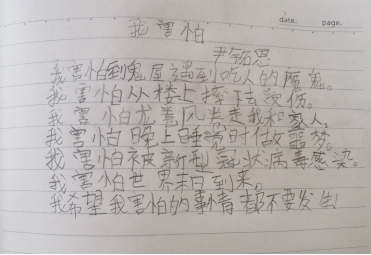 date. page.
我害怕
尹铭恩
我害怕到鬼屋遇到吃人的魔鬼。
我害怕从楼上摔下去受伤。
我害怕龙卷风卷走我和家人。
我害怕晚上睡觉时做噩梦。
我害怕被新型冠状病毒感染。
我害怕世界末日到来。
我希望我害怕的事情都不要发生!